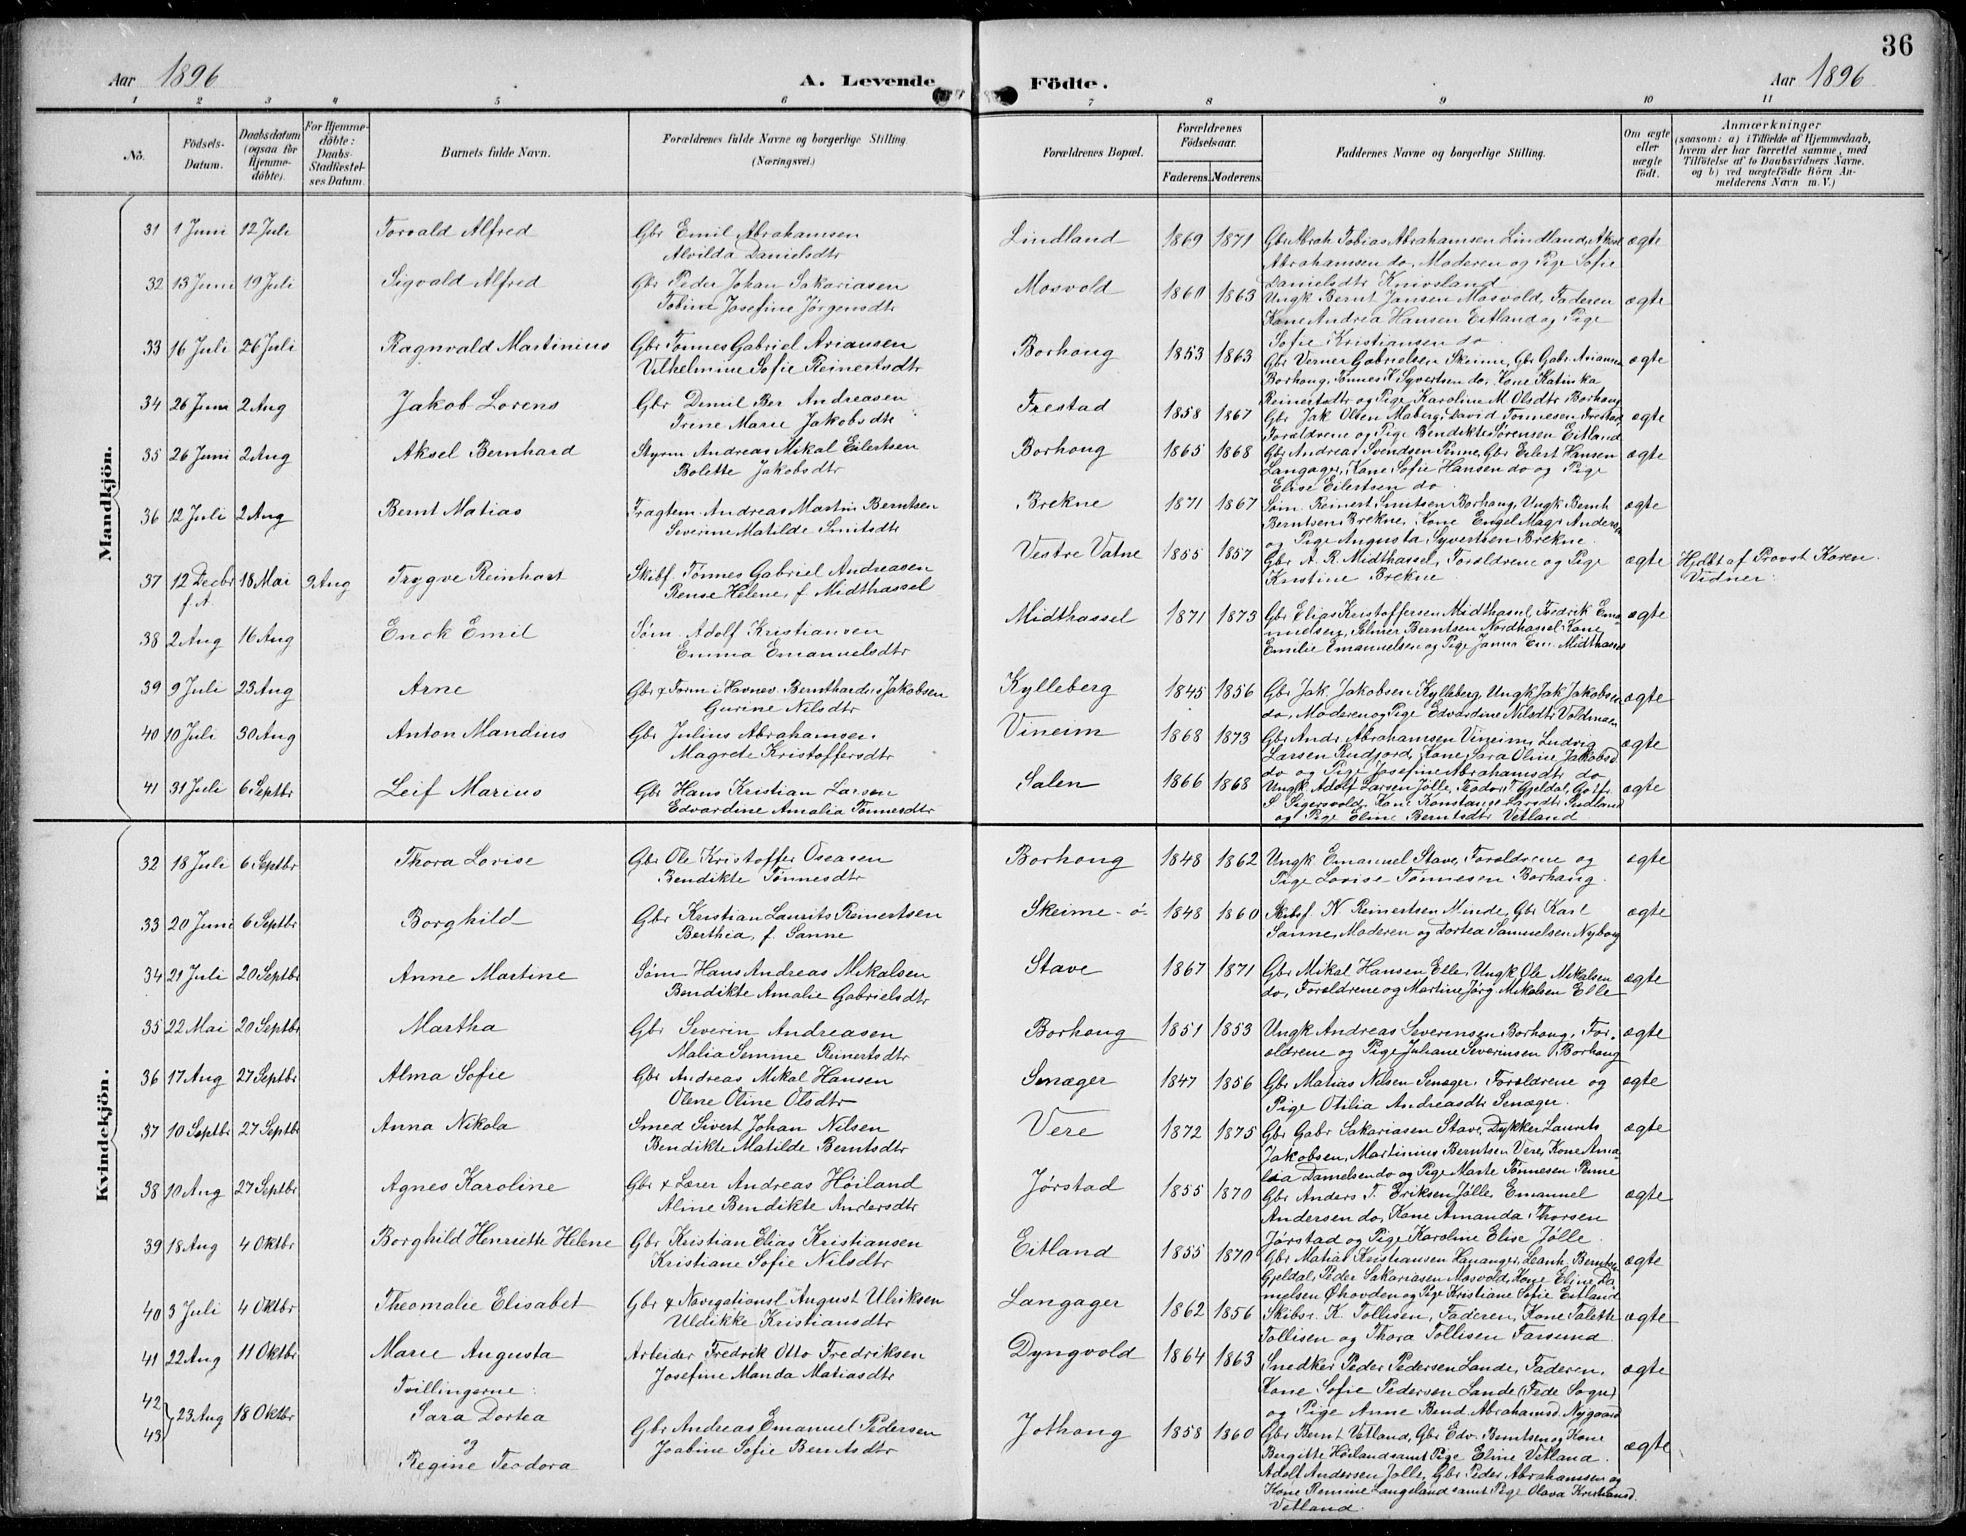 36
Aar 1896 A. Levende Födte. Aar 1896
1 2 3 4 5 6 7 8 9 10 11
No. Födsels-Datum. Daabsdatum (ogsaa for Hjemme-döbte). For Hjemme-döbte: Daabs-Stadfæstel-ses Datum. Barnets fulde Navn. Forældrenes fulde Navne og borgerlige Stilling. (Næringsvei.) Forældrenes Bopæl. Forældrenes Födselsaar. Faderens. Moderens. Faddernes Navne og borgerlige Stilling. Om ægte eller uægte födt. Anmærkninger (saasom: a) i Tilfælde af Hjemmedaab, hvem der har forrettet samme, med Tilföielse af to Daabsvidners Navne, og b) ved uægtefödte Börn An-melderens Navn m. V.)
Mandkjön.
31 1 Juni 12 Juli Torvald Alfred Gbr Emil Abrahamsen Lindland 1869 1871 Gbr Abrah. Tobias Abrahamsen Lindland, Aksel ægte
Alvilda Danielsdtr Abrahamsen do, Moderen og Pige Sofie
Danielsdtr Knivsland
32 13 Juni 19 Juli Sigvald Alfred Gbr Peder Johan Sakariasen Mosvold 1860 1863 Ungk Bernt Jansen Mosvold, Faderen ægte
Tobine Josefine Jørgensdtr Kone Andrea Hansen Eitland og Pige
Sofie Kristiansen do
33 16 Juli 26 Juli Ragnvald Martinius Gbr Tønnes Gabriel Ariansen Borhoug 1853 1863 Gbr Verner Gabrielsen Skeime, Gbr Gabr. Ariansen ægte
Vilhelmine Sofie Reinertsdtr Borhoug, Tønnes K Syvertsen do, Kone Katinka
Reinertsdtr og Pige Karoline M Olsdtr Borhoug
34 26 Juni 2 Aug Jakob Lorens Gbr Demil Ber Andreasen Frestad 1858 1867 Gbr Jak Olsen Maberg, David Tønnesen Frestad, ægte
Trine Marie Jakobsdtr Forældrene og Pige Bendikte Sørensen Eitland
35 26 Juni 2 Aug Aksel Bernhard Styrm Andreas Mikal Eilertsen Borhoug 1865 1868 Gbr Andreas Svendsen Penne, Gbr Eilert Hansen ægte
Bolette Jakobsdtr Langager, Kone Sofie Hansen do og Pige
Elise Eilertsen do
36 12 Juli 2 Aug Bernt Matias Fragtem Andreas Martin Berntsen Brekne 1871 1867 Søm Reinert Smitsen Borhaug, Ungk Bernt ægte
Severine Matilde Smitsdtr Berntsen Brekne, Kone Engel Magr Anders
og Pige Augusta Syvertsen Brekne
37 12 Decbr f.A. 18 Mai 2 Aug Trygve Reinhart Skibf. Tønnes Gabriel Andreasen Vestre Vatne 1855 1857 Gbr A. R. Midthassel, Forældrene og Pige ægte Hjdbt af Provst Koren.
Rense Helene, f. Midthassel Kristine Brekne Vidner:
38 2 Aug 16 Aug Erick Emil Søm Adolf Kristiansen Midthassel 1871 1873 Gbr Elias Kristoffersen Midthassel, Fredrik Ema- ægte
Emma Emanuelsdtr nuelsen, Selmer Berntsen Nordhassel, Kone
Emilie Emanuelsen og Pige Janna Em. Midthassel
39 9 Juli 23 Aug Arne Gbr & Form i Havnev. Bernthardus Jakobsen Kylleberg 1845 1856 Gbr Jak. Jakobsen Kylleberg, Ungk Jak Jakobsen ægte
Gurine Nilsdtr do, Moderen og Pige Edvardine Nilsdtr Voldmoen
40 10 Juli 30 Aug Anton Mandius Gbr Julius Abrahamsen Vineim 1868 1873 Gbr Andr. Abrahamsen Vineim, Ludvig ægte
Magrete Kristoffersdtr Larsen Rudjord, Kone Sara Oline Jakobsd
do og Pige Josefine Abrahamsdtr do
41 31 Juli 6 Septbr Leif Marius Gbr Hans Kristian Larsen Salen 1866 1868 Ungk Adolf Larsen Jølle, Teodor T Gjeldal, Gotfr. ægte
Edvardine Amalia Tønnesdtr S Sigersvold, Kone Konstanse Larsdtr Sudland
og Pige Eline Berntsdtr Vetland
Kvindekjön.
32 18 Juli 6 Septbr Thora Lovise Gbr Ole Kristoffer Oseasen Borhoug 1848 1862 Ungk Emanuel Stave, Forældrene og ægte
Bendikte Tønnesdtr Pige Lovise Tønnesen Borhaug.
33 20 Juni 6 Septbr Borghild Gbr Kristian Laurits Reinertsen Skeime-ø 1848 1860 Skibsf N. Reinertsen Minde, Gbr Karl ægte
Berthia, f. Sanne Sanne, Moderen og Dortea Samuelsen Nyborg
34 21 Juli 20 Septbr Anne Martine Søm Hans Andreas Mikalsen Stave 1867 1871 Gbr Mikal Hansen Elle, Ungk Ole Mikalsen ægte
Bendikte Amalie Gabrielsdtr do, Forældrene og Martine Jørg Mikalsen Elle
35 22 Mai 20 Septbr Martha Gbr Severin Andreasen Borhoug 1851 1853 Ungk Andreas Severinsen Borhoug, For- ægte
Malia Semme Reinertsdtr ældrene og Pige Juliane Severinsen Borhoug
36 17 Aug 27 Septbr Alma Sofie Gbr Andreas Mikal Hansen Snæger 1847 1856 Gbr Matias Nilsen Snæger, Forældrene og ægte
Olene Oline Olsdtr Pige Otilia Andreasdtr Snæger.
37 10 Septbr 27 Septbr Anna Nikola Smed Sivert Johan Nilsen Vere 1872 1875 Gbr Gabr Sakariasen Stave, Dykker Laurits ægte
Bendikte Matilde Berntsdtr Jakobsen, Martinius Berntsen Vere, Kone Ama-
lia Danielsen do og Pige Marte Tønnesen Penne
38 10 Aug 27 Septbr Agnes Karoline Gbr & Lærer Andreas Höiland Jørstad 1855 1870 Gbr Anders T. Eriksen Jølle, Emanuel ægte
Aline Bendikte Andersdtr Andersen do, Kone Amanda Thorsen
Jørstad og Pige Karoline Elise Jølle
39 18 Aug 4 Oktbr Borghild Henriette Helene Gbr Kristian Elias Kristiansen Eitland 1855 1870 Gbr Matias Kristiansen Hananger, Leanh. Berntsen ægte
Kristiane Sofie Nilsdtr Gjeldal, Peder Sakariasen Mosvold, Kone Eline Da-
nielsen Øhovden og Pige Kristiane Sofie Eitland
40 3 Juli 4 Oktbr Theomalie Elisabet Gbr & Navigationsl August Ulriksen Langager 1862 1856 Skibsr. K. Tollisen, Faderen, Kone Talette ægte
Uldikke Kristiansdtr Tollisen og Thora Tollisen Farsund
41 22 Aug 11 Oktbr Marie Augusta Arbeider Fredrik Otto Fredriksen Dyngvold 1864 1863 Snedker Peder Pedersen Lande, Faderen, ægte
Josefine Manda Matiasdtr Kone Sofie Pedersen Lande (Fede Sogn)
og Pige Anne Bend. Abrahamsd. Nygaard
Tvillingerne:
42 43 23 Aug 18 Oktbr Sara Dortea Gbr Andreas Emanuel Pedersen Jothoug 1858 1860 Gbr Bernt Vetland, Gbr Edv. Berntsen og Kone ægte
og Joabine Sofie Berntsdtr Bergitte Höiland samt Pige Eline Vetland.
Regine Teodora Adolf Andersen Jølle, Gbr Peder Abrahamsen og
Kone Remine Langeland samt Pige Olava Kristiansd.
Vetland.